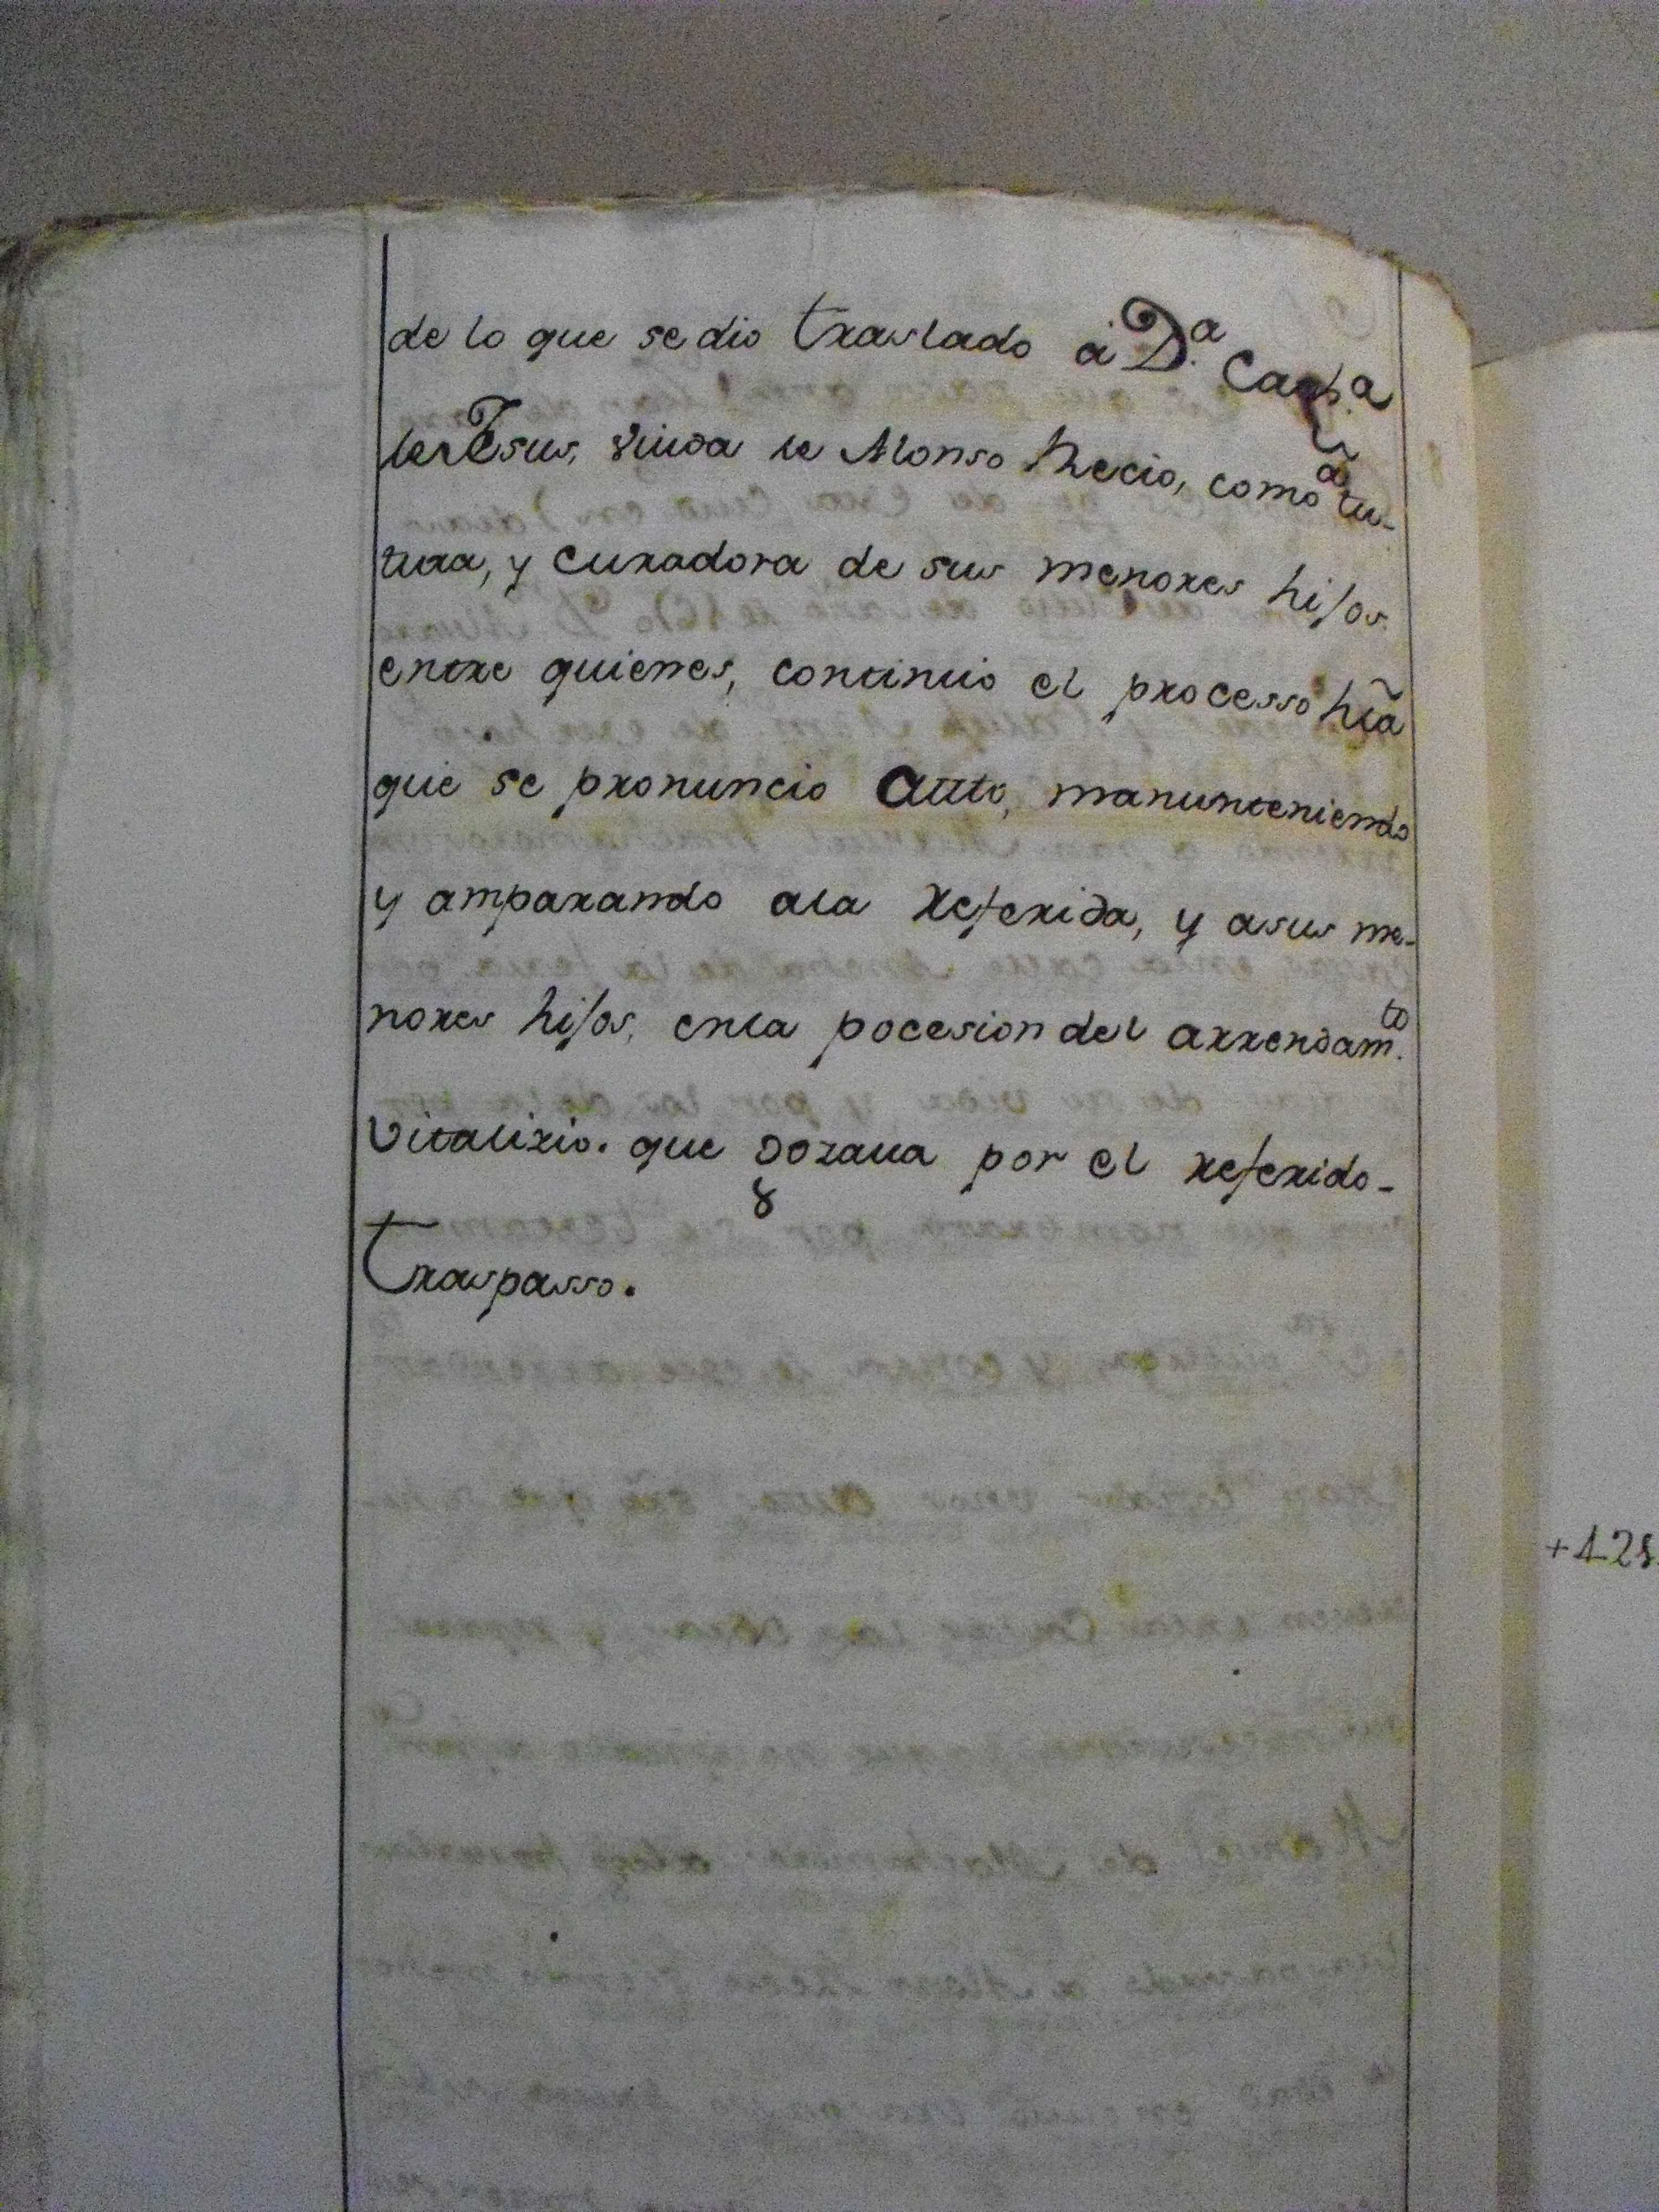 de lo que se dio traslado â D.ª Cath.ª
de Jesus, Viuda de Alonso Recio, como tu-
tura, y Curadora de sus menores hijos.
entre quienes, continuio el processo hta
que se pronuncio Autto, manunteniendo
y amparando ala Referida, y asus me-
nores hijos, enla pocesion del arrendam.to
Vitalizio. que gozaua por el referido-
Traspasso.
+128